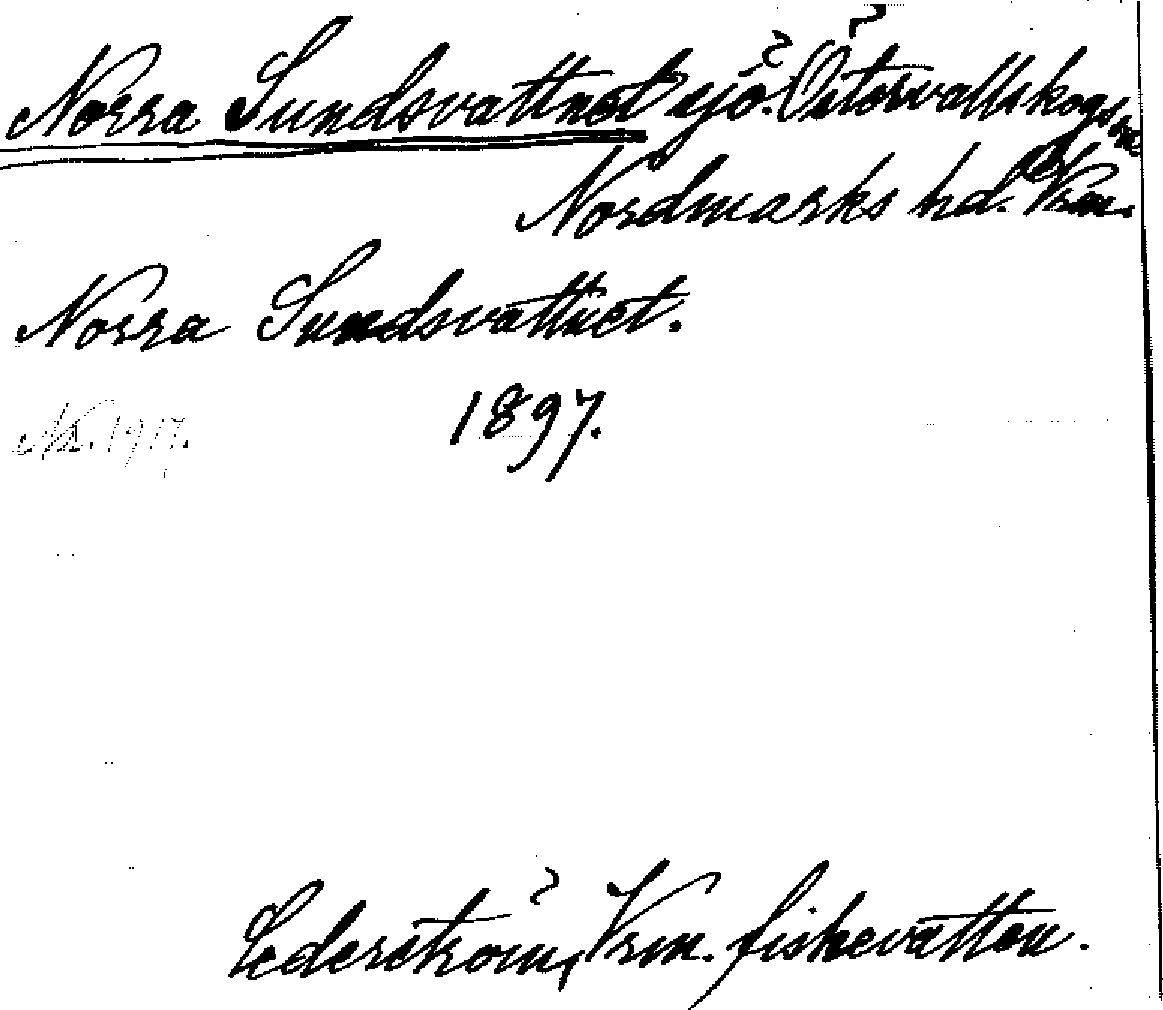 Norra Sundsvattnet sjö. Östervallskogs sn
Nordmarks hd. Vrm.
Norra Sundsvattnet.
1897.
Nn. 1917.
Cederström, Vrm. fiskevatten.